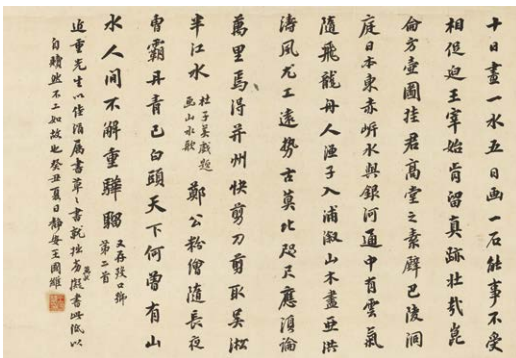 十日畫一水五日画一石能事不受
相促迫王宰始肯留真跡壯哉崑
侖方壺圖挂君高堂之素壁巴陵洞
庭日本東赤岍水與銀河通中有雲氣
隨飛龍舟人漁子入浦漵山木盡亞洪
濤風尤工遠勢古莫比咫尺應湏論
萬里焉得并州快剪刀剪取吳淞
半江水 杜子美戲題画山水歌 鄭公粉繪隨長夜
曹霸丹青已白頭天下何曾有山
水人间不解重驊騮 又存歿口號第二首
近重先生以佳絹属書草〻書就拙劣擬書此紙以
自贖然不工如故也癸丑夏日靜安王國維